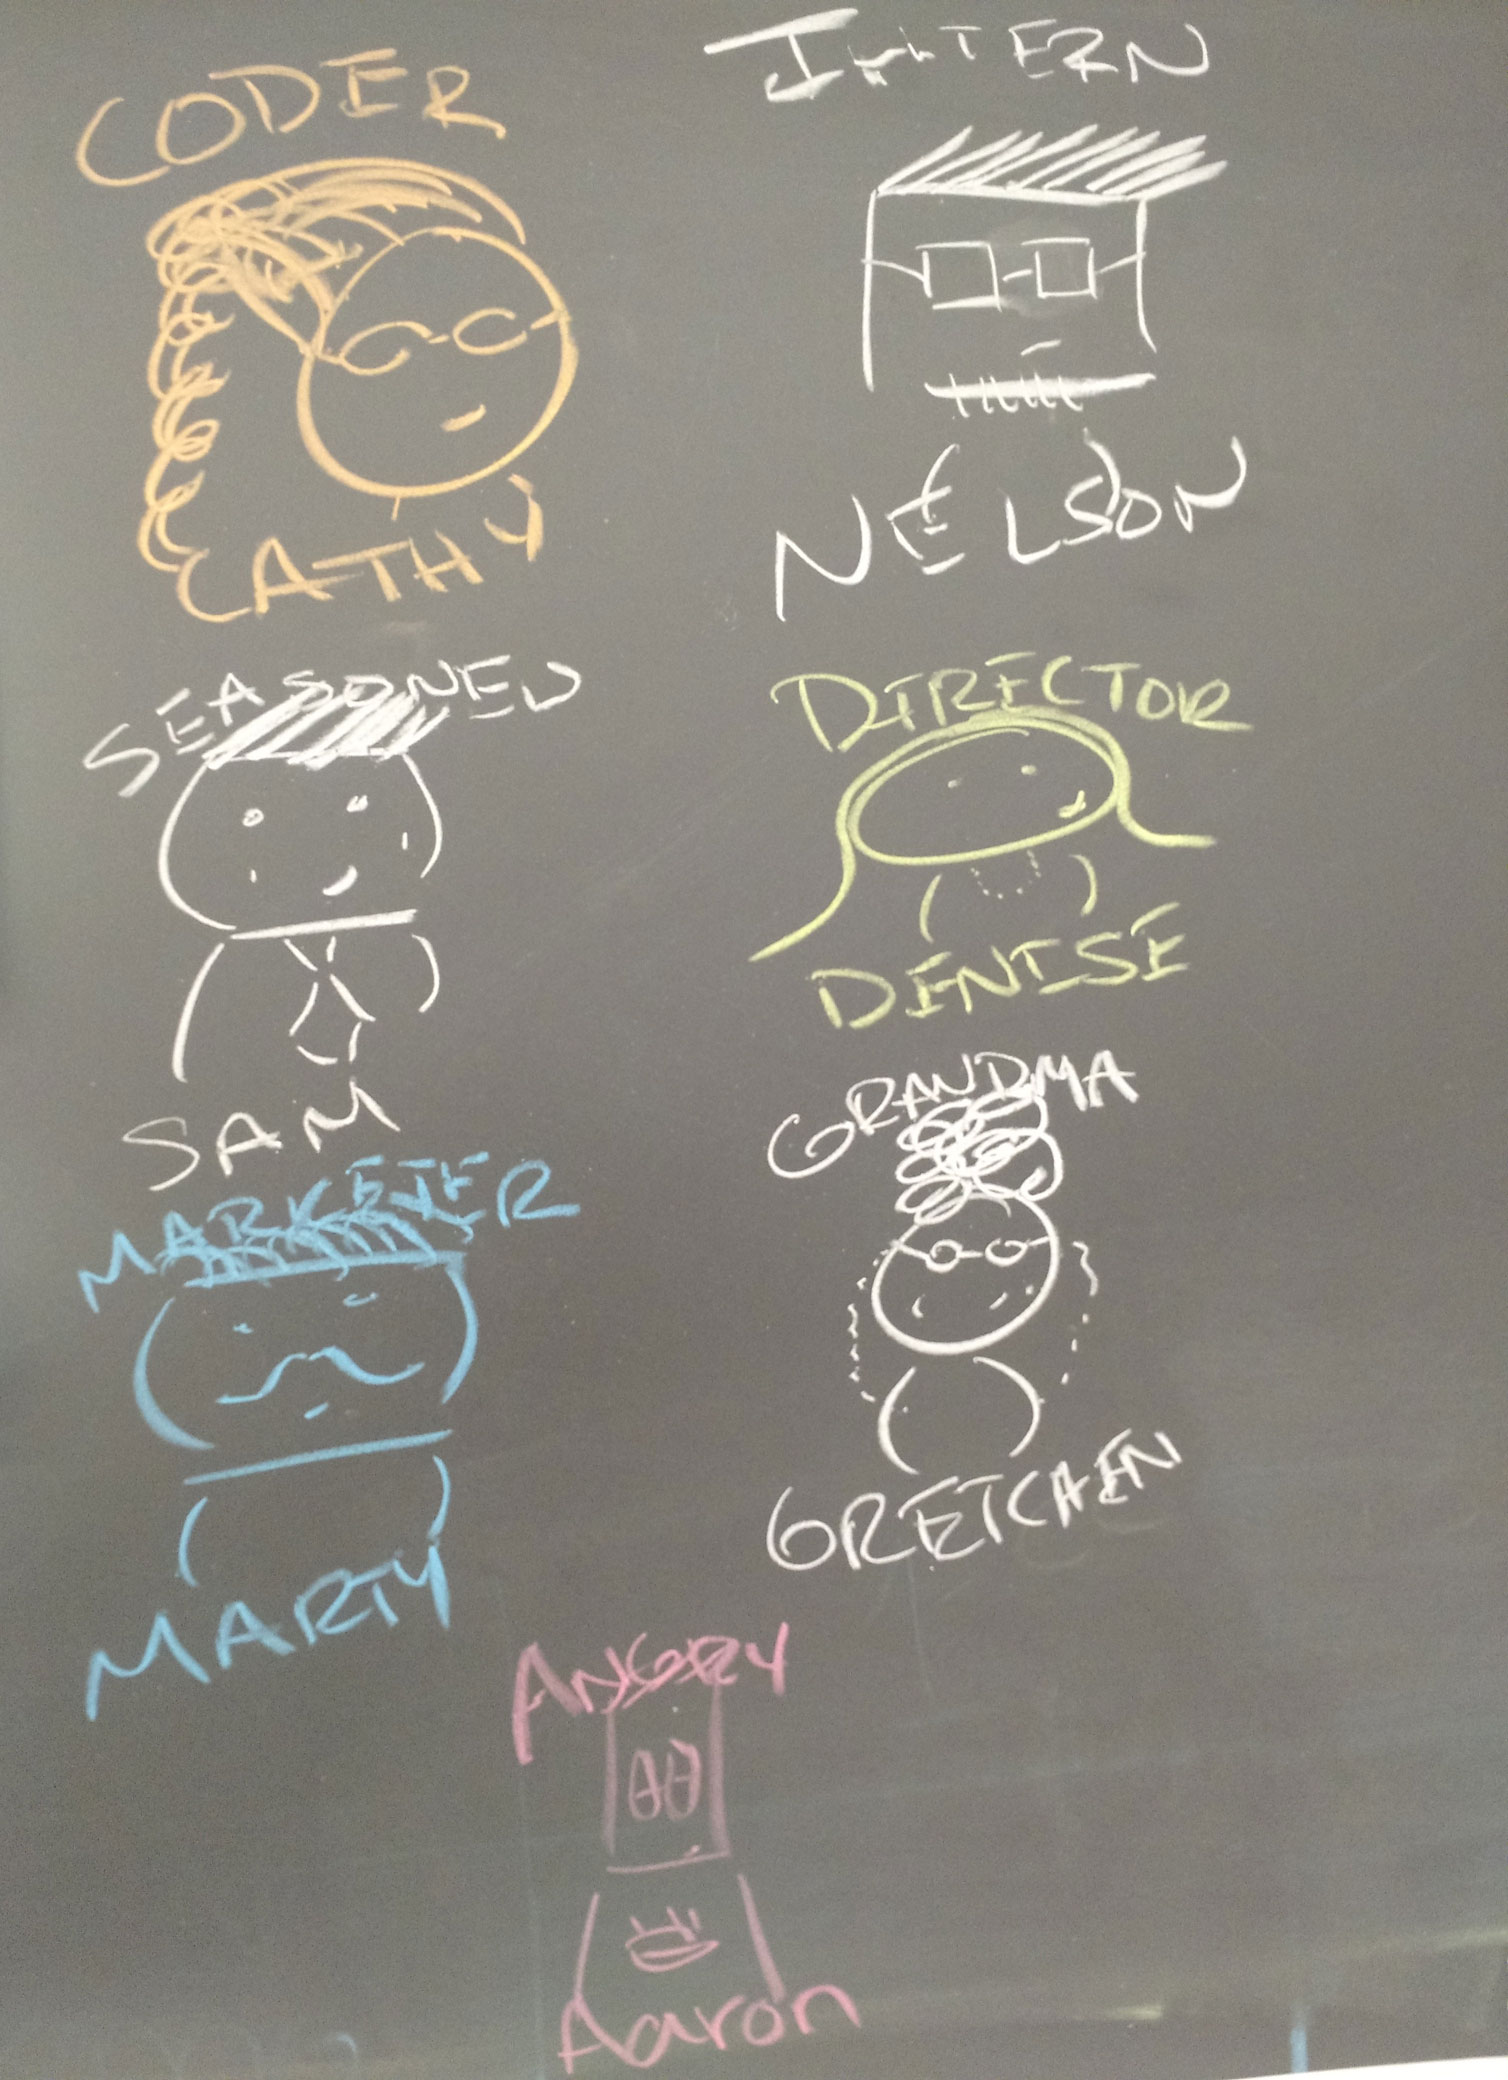 CODER
CATHY
INTERN
NELSON
SEASONED
SAM
DIRECTOR
DENISE
MARKETER
MARTY
GRANDMA
GRETCHEN
ANGRY
Aaron